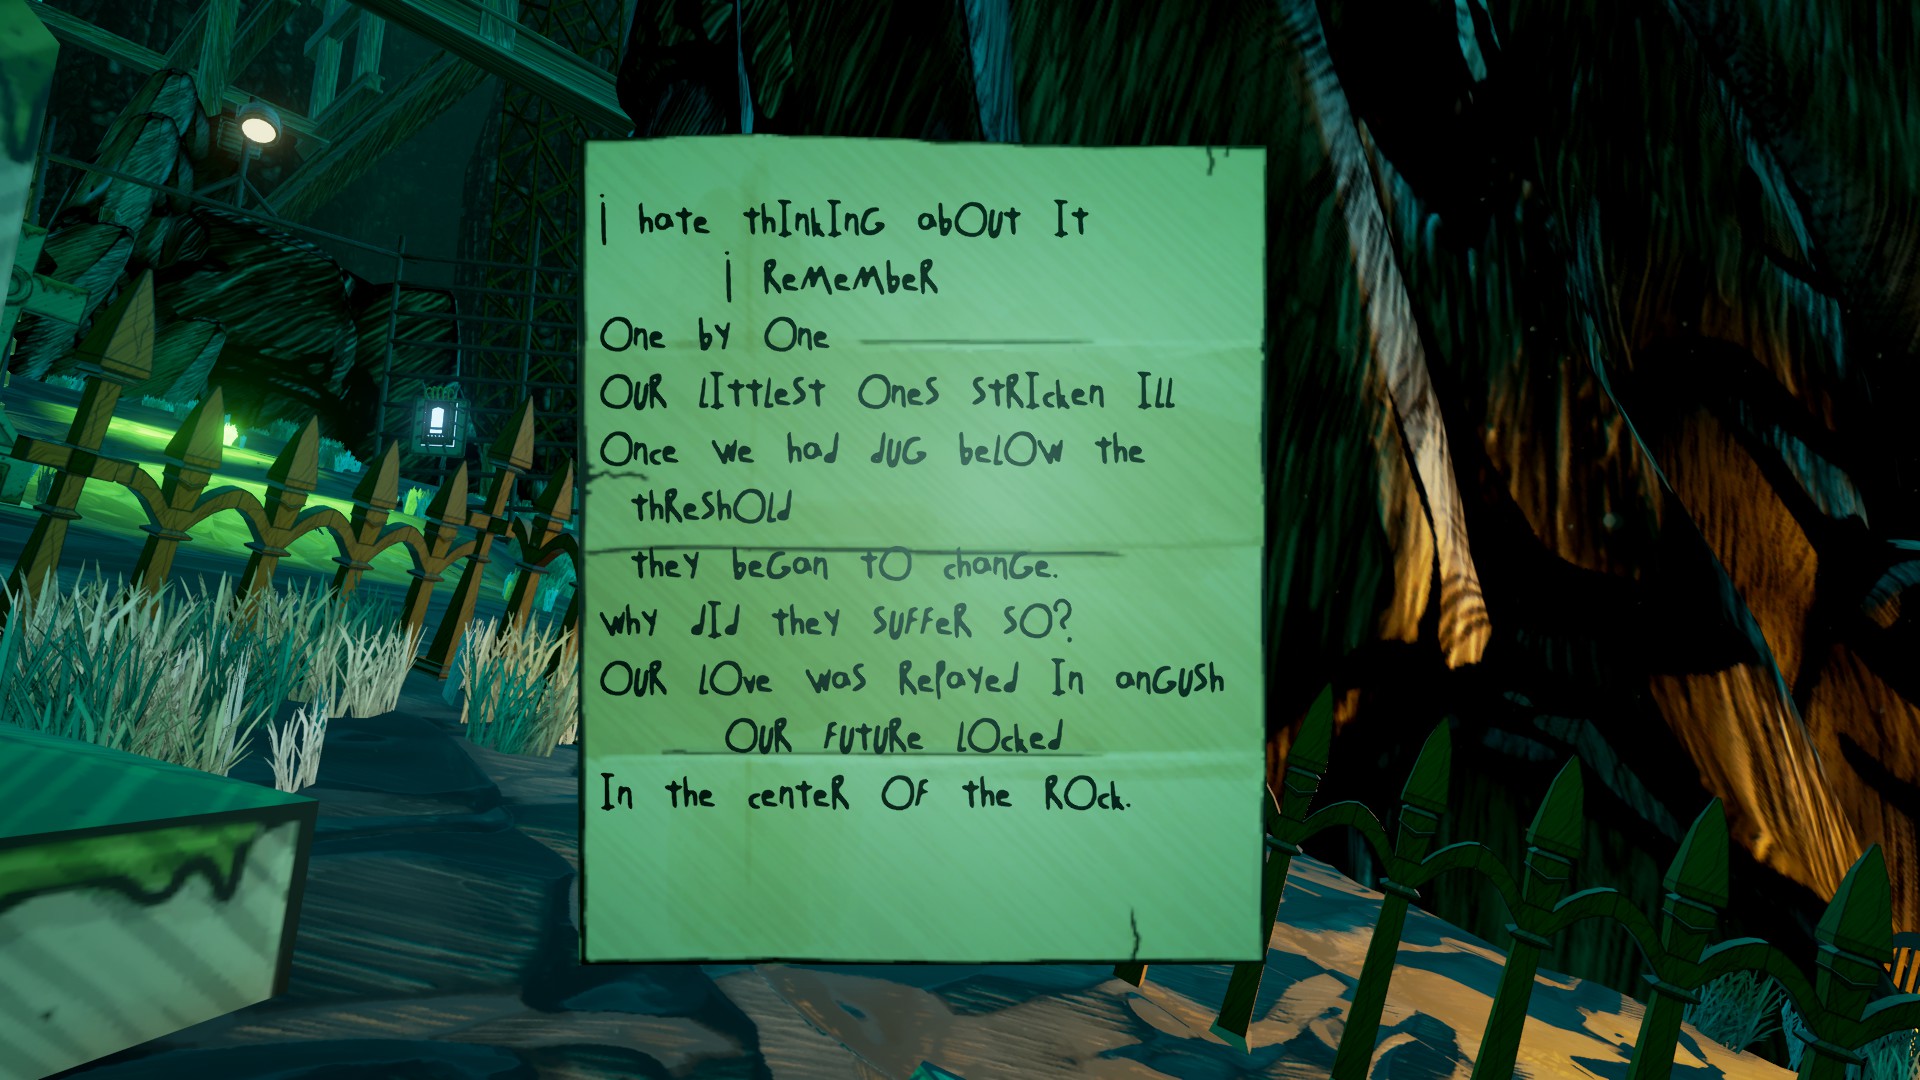 i hate thInkIng abOUt It
i ReMeMbeR
One by One
OUR lIttlest Ones stRIcken Ill
Once we had dUG belOw the
thReshOld
they beGan tO chanGe.
why dId they sUFFeR sO?
OUR lOve was RePayed In anGUsh
OUR FUtURe lOcked
In the centeR OF the ROck.